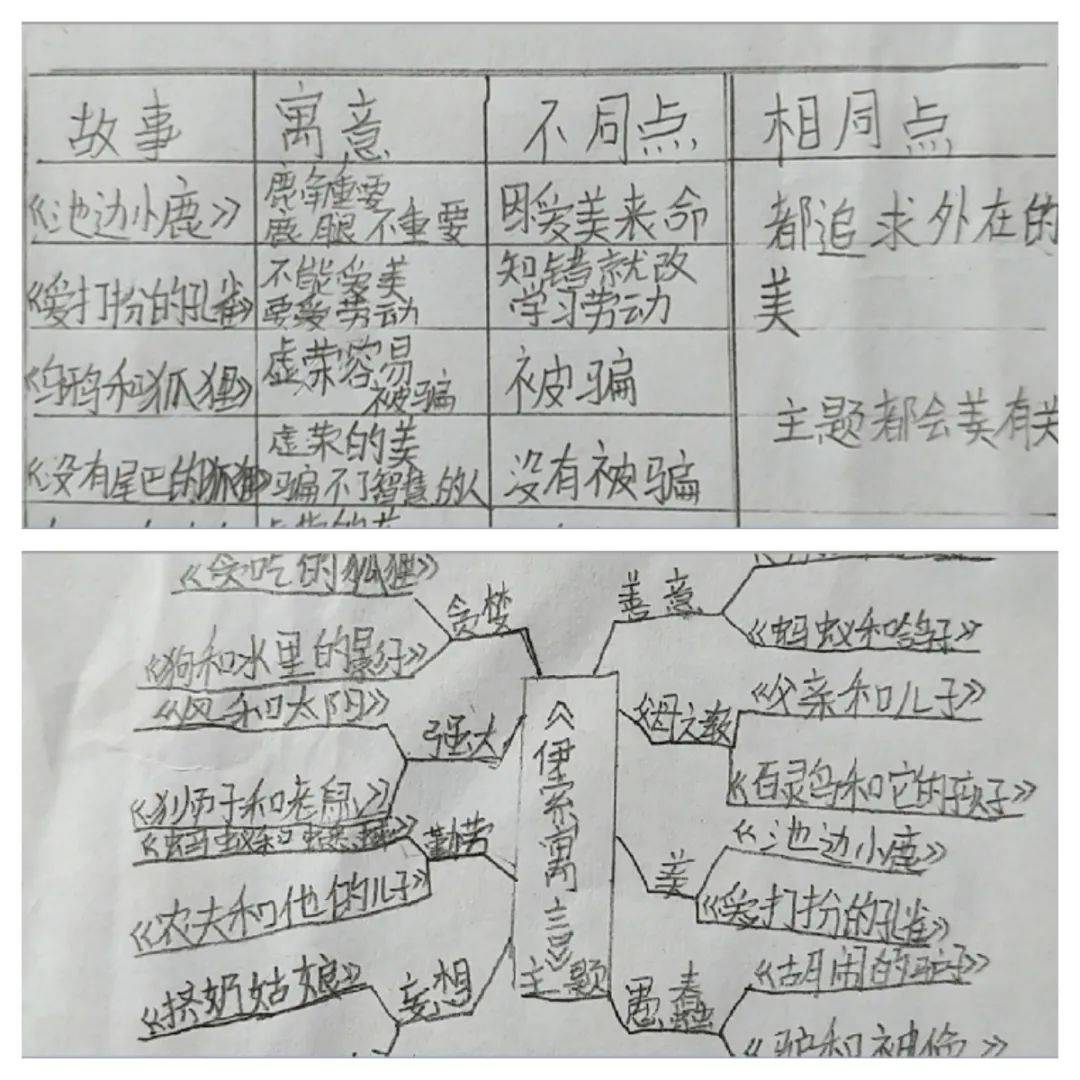 故事 寓意 不同点 相同点
《池边小鹿》
鹿角重要
鹿腿不重要
因爱美丧命
都追求外在的
美
《爱打扮的孔雀》
不能爱美
要爱劳动
知错就改
学习劳动
《乌鸦和狐狸》
虚荣容易
被骗
被骗
主题都会美有关
《没有尾巴的狐狸》
虚荣的美
骗不了智慧的人
没有被骗
《伊索寓言》
主题
贪婪
《贪吃的狐狸》
《狗和水里的影子》
强大
《风和太阳》
《狮子和老鼠》
勤劳
《农夫和他的儿子》
妄想
《挤奶姑娘》
善意
《蚂蚁和鸽子》
父母之教
《父亲和儿子》
《百灵鸟和它的孩子》
美
《池边小鹿》
《爱打扮的孔雀》
愚蠢
《胡闹的驴子》